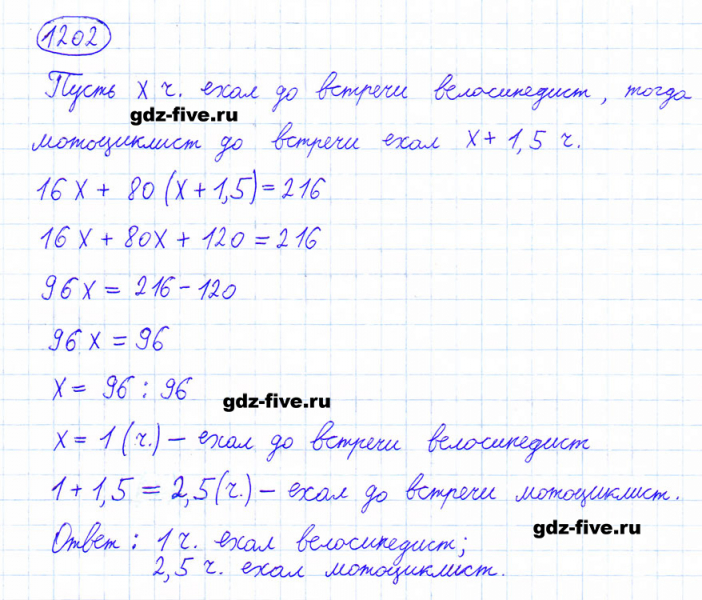 1202
Пусть x ч. ехал до встречи велосипедист, тогда
gdz-five.ru
мотоциклист до встречи ехал x + 1,5 ч.
16x + 80(x + 1,5) = 216
16x + 80x + 120 = 216
96x = 216 - 120
96x = 96
x = 96 : 96
gdz-five.ru
x = 1 (ч.) – ехал до встречи велосипедист
1 + 1,5 = 2,5 (ч.) – ехал до встречи мотоциклист.
gdz-five.ru
Ответ: 1 ч. ехал велосипедист;
2,5 ч. ехал мотоциклист.